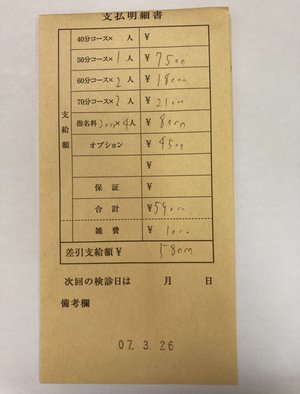 支払明細書
支給額
40分コース× 人 ¥
50分コース× 1人 ¥ 7500
60分コース× 2人 ¥ 18000
70分コース× 2人 ¥ 21000
指名料 2000×4人 ¥ 8000
オプション ¥ 4500
¥
保証 ¥
合計 ¥59000
雑費 ¥ 1000
差引支給額 ¥ 58000
次回の検診日は 月 日
備考欄
07. 3. 26